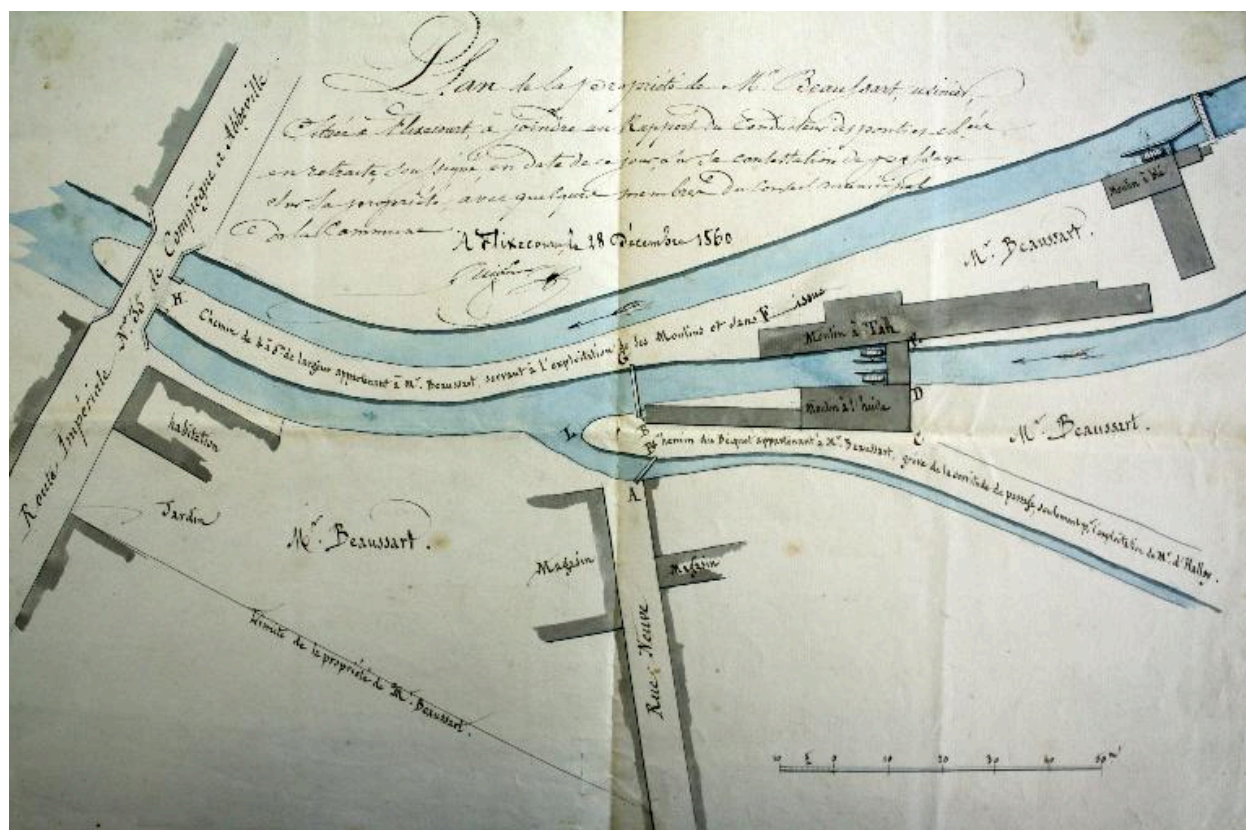 Plan de la propriété de Mr. Beaussart, usinier,
Située à Flixecourt, à joindre au Rapport du Conducteur des ponts et ch.ées
en retraite, soussigné, en date de ce jour, sur la contestation de passage
sur la propriété, avec quelques membres du Conseil municipal
de la Commune.
A Flixecourt, le 28 Décembre 1860
Route Impériale N° 35 de Compiègne à Abbeville
H
Chemin de 4 à 5m de largeur appartenant à Mr. Beaussart, servant à l'exploitation de ses Moulins et sans issue
G
F
Moulin à blé
Mr. Beaussart.
Moulin à Tan
E
D
Moulin à l'huile
C
Mr. Beaussart.
L
B
A
Chemin du Becquet appartenant à Mr. Beaussart, grévé de la servitude de passage, seulement pr. l'exploitation de Mr. d'Halloy.
habitation
Jardin
Mr. Beaussart.
Magasin
Magasin
Rue Neuve
Limite de la propriété de Mr. Beaussart.
10 5 0 10 20 30 40 50 m